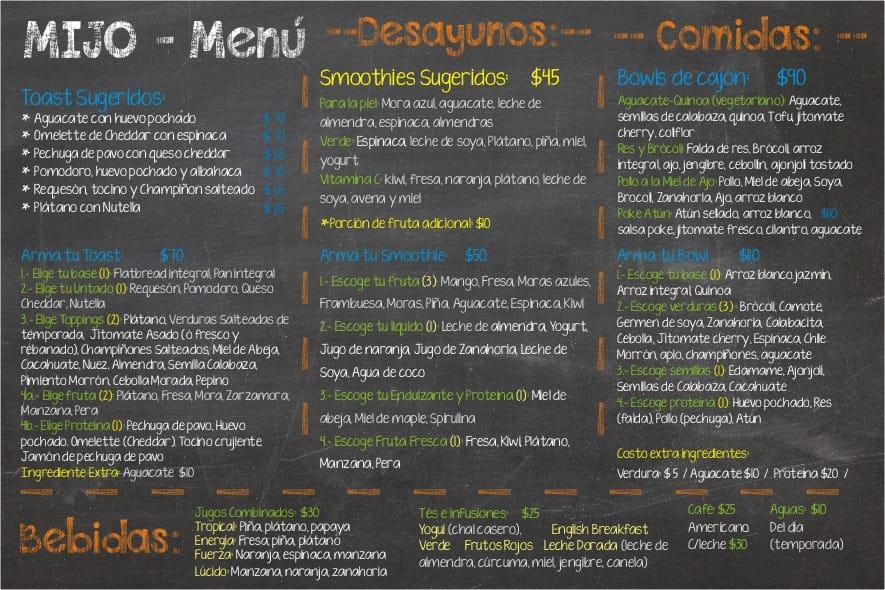 MIJO - Menú
Toast Sugeridos:
* Aguacate con huevo pochado $ 70
* Omelette de Cheddar con espinaca $ 70
* Pechuga de pavo con queso cheddar
* Pomodoro, huevo pochado y albahaca $ 70
* Requesón, tocino y Champiñon salteado $ 65
* Plátano con Nutella $ 65
Arma tu Toast $70
1.- Elige tu base (1): Flatbread integral, Pan integral
2.- Elige tu Untado (1): Requesón, Pomodoro, Queso
Cheddar, Nutella
3.- Elige Toppings (2): Plátano, Verduras Salteadas de
témporada, Jitomate Asado (ó fresco y
rebanado), Champiñones Salteados, Miel de Abeja,
Cacahuate, Nuez, Almendra, Semilla Calabaza,
Pimiento Morrón, Cebolla Morada, Pepino
4a.- Elige fruta (2): Plátano, Fresa, Mora, Zarzamora,
Manzana, Pera
4b.- Elige Proteína (1): Pechuga de pavo, Huevo
pochado, Omelette (Cheddar), Tocino crujiente,
Jamón de pechuga de pavo
Ingrediente Extra: Aguacate $10
--Desayunos:--
Smoothies Sugeridos: $45
Para la piel: Mora azul, aguacate, leche de
almendra, espinaca, almendras
Verde: Espinaca, leche de soya, Plátano, piña, miel,
yogurt
Vitamina C: Kiwi, fresa, naranja, plátano, leche de
soya, avena y miel
*Porción de fruta adicional: $10
Arma tu Smoothie: $50
1.- Escoge tu fruta (3): Mango, Fresa, Moras azules,
Frambuesa, Moras, Piña, Aguacate, Espinaca, Kiwi
2.- Escoge tu líquido (1): Leche de almendra, Yogurt,
Jugo de naranja, Jugo de Zanahoria, Leche de
Soya, Agua de coco
3.- Escoge tu Endulzante y Proteína (1): Miel de
abeja, Miel de maple, Spirulina
4.- Escoge Fruta Fresca (1): Fresa, Kiwi, Plátano,
Manzana, Pera
-- Comidas: --
Bowls de cajón: $90
Aguacate-Quinoa (vegetariano): Aguacate,
semillas de calabaza, quinoa, Tofu, jitomate
cherry, coliflor
Res y Brócoli: Falda de res, Brócoli, arroz
integral, ajo, jengibre, cebollín, ajonjolí tostado
Pollo a la Miel de Ajo: Pollo, Miel de abeja, Soya,
Brocoli, Zanahoria, Ajo, arroz blanco
Poke Atún: Atún sellado, arroz blanco, $110
salsa poke, jitomate fresco, cilantro, aguacate
Arma tu Bowl $110
1.- Escoge tu base (1): Arroz blanco jazmin,
Arroz integral, Quinoa
2.- Escoge verduras (3): Brócoli, Camote,
Germen de soya, Zanahoria, Calabacita,
Cebolla, Jitomate cherry, Espinaca, Chile
Morrón, apio, champiñones, aguacate
3.- Escoge semillas (1): Edamame, Ajonjolí,
Semillas de Calabaza, Cacahuate
4.- Escoge proteína (1): Huevo pochado, Res
(falda), Pollo (pechuga), Atún
Costo extra ingredientes:
Verdura: $ 5 / Aguacate $10 / Proteína $20 /
Bebidas:
Jugos Combinados: $30
Tropical: Piña, plátano, papaya
Energía: Fresa, piña, plátano
Fuerza: Naranja, espinaca, manzana
Lúcido: Manzana, naranja, zanahoria
Tés e Infusiones: $25
Yogui (chai casero), English Breakfast
Verde Frutos Rojos Leche Dorada (leche de
almendra, cúrcuma, miel, jengibre, canela)
Café: $25
Americano
C/leche $30
Aguas: $10
Del día
(temporada)